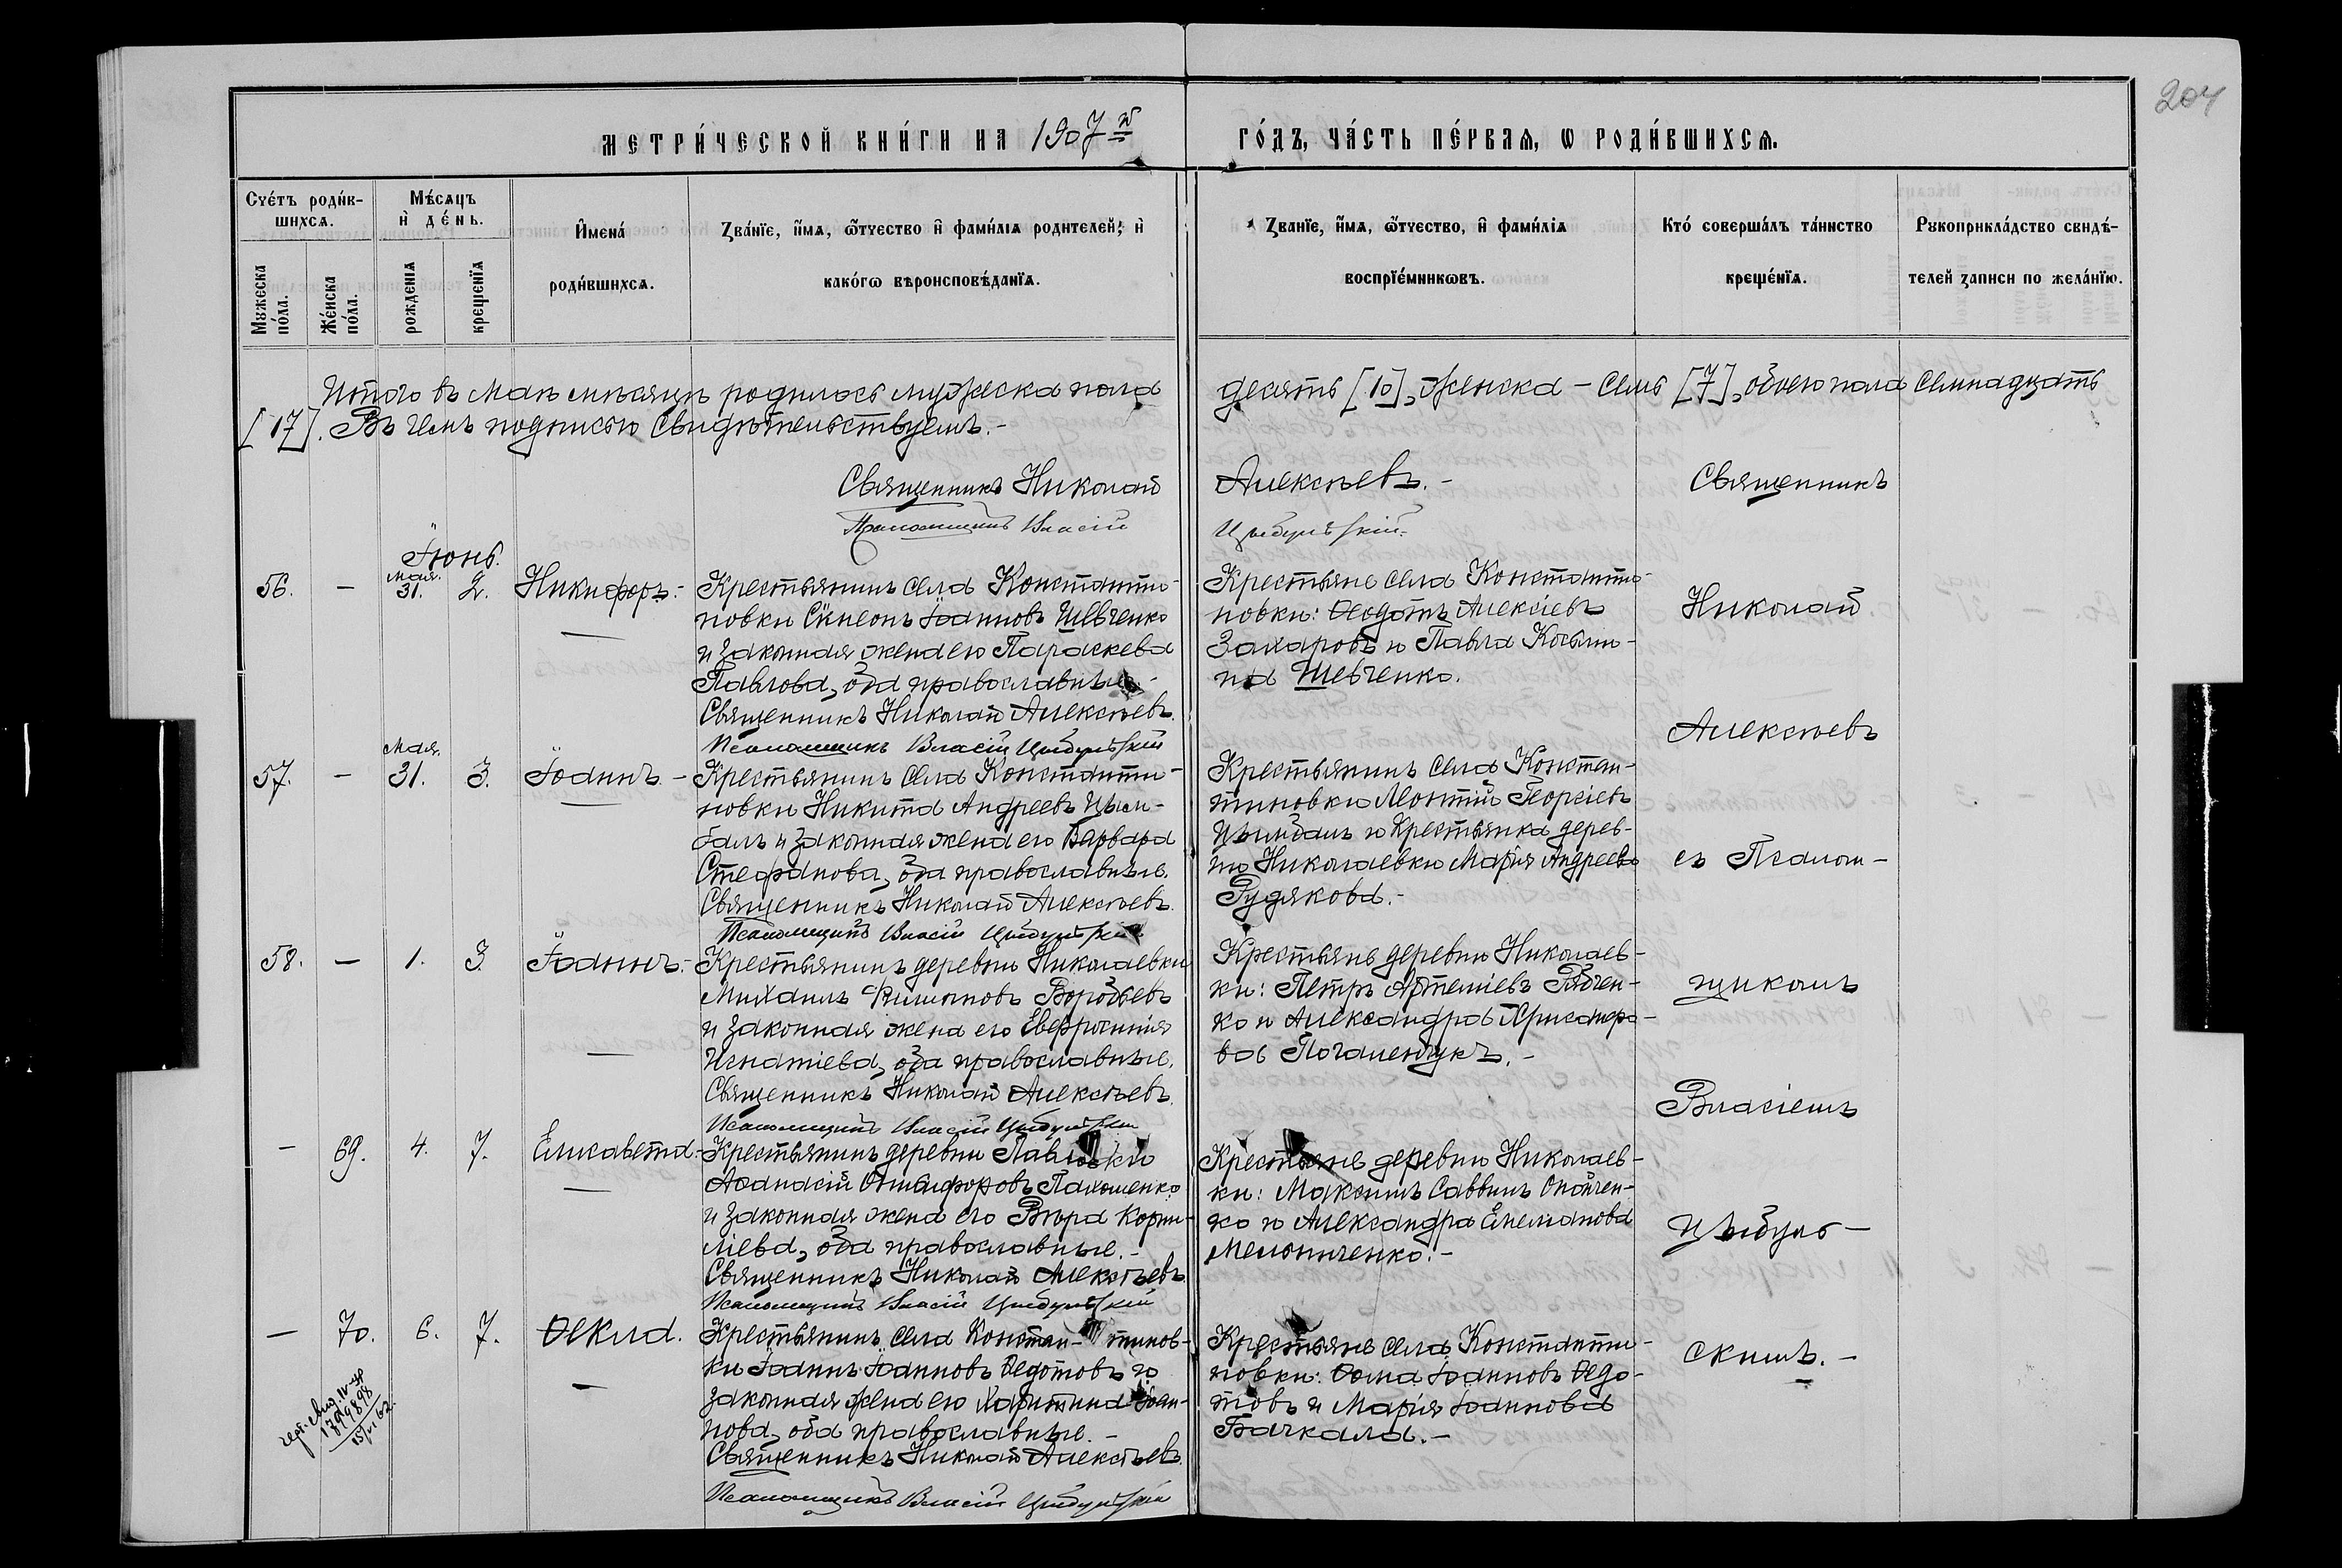 204
МЕТРИ́ЧЕСКОЙ КНИ́ГИ НА 1907-й ГО́ДЪ, ЧА́СТЬ ПЕ́РВАѦ, Ѡ РОДИ́ВШИХСѦ.
Сче́тъ роди́в-
шихсѧ.
Му́жеска по́ла.
Же́нска по́ла.
Мѣ́сѧцъ
и҆ де́нь.
рожденїѧ
крещенїѧ
И҆мена́
роди́вшихсѧ.
Зва́нїе, и҆́мѧ, ѻ҆́тчество и҆ фами́лїѧ роди́телей, и҆
како́гѡ вѣроисповѣ́данїѧ.
Зва́нїе, и҆́мѧ, ѻ҆́тчество, и҆ фами́лїѧ
воспрїе́мникѡвъ.
Кто́ соверша́лъ та́инство
креще́нїѧ.
Рꙋкоприкла́дство свидѣ́-
телей записи по жела́нїю.
Итого въ Маѣ мѣсяцѣ родилось мужеска пола десять [10], женска - семь [7], обоего пола семнадцать
[17]. Въ чемъ подписью свидѣтельствуемъ.-
Священникъ Николай Алексѣевъ.-
Псаломщикъ Власій Цыбульскій.
Іюнь.
56. - Мая. 31. 2. Никифоръ.-
Крестьянинъ села Константи-
новки Сѵмеонъ Іоанновъ Шевченко
и законная жена его Параскева
Павлова, оба православные.-
Священникъ Николай Алексѣевъ.
Псаломщикъ Власій Цыбульскій
Крестьяне села Константи-
новки: Ѳеодотъ Алексіевъ
Захаровъ и Павла Косьми-
на Шевченко.
57. - Мая. 31. 3. Іоаннъ.-
Крестьянинъ села Константи-
новки Никита Андреевъ Цым-
балъ и законная жена его Варвара
Стефанова, оба православные.
Священникъ Николай Алексѣевъ.
Псаломщикъ Власій Цыбульскій
Крестьянинъ села Констан-
тиновки Леонтій Георгіевъ
Цымбалъ и Крестьянка дерев-
ни Николаевки Марія Андреева
Рудякова.-
58. - 1. 3. Іоаннъ.-
Крестьянинъ деревни Николаевки
Михаилъ Филимоновъ Воробьевъ
и законная жена его Евфросинія
Игнатіева, оба православные.
Священникъ Николай Алексѣевъ.
Псаломщикъ Власій Цыбульскій
Крестьяне деревни Николаев-
ки: Петръ Артеміевъ Рябчен-
ко и Александра
ва
- 69. 4. 7. Елисавета.-
Крестьянинъ деревни Павловки
Аѳанасій Онисифоровъ Пахоменко
и законная жена его Вѣра Корни-
ліева, оба православные.-
Священникъ Николай Алексѣевъ
Псаломщикъ Власій Цыбульскій
Крестьяне деревни Николаев-
ки: Максимъ Саввинъ
ко и Александра Емеліанова
Мельниченко.-
- 70. 6. 7. Ѳекла.
Крестьянинъ села Констан-тинов-
ки Іоаннъ Іоанновъ Ѳедотовъ и
законная жена его Харитина Іоан-
нова, оба православные.-
Священникъ Николай Алексѣевъ.
Псаломщикъ Власій Цыбульскій
Крестьяне села Константи-
новки: Ѳома Іоанновъ Ѳедо-
товъ и Марія Іоаннова
Бачкала.-
Священникъ
Николай
Алексѣевъ
съ Псалом-
щикомъ
Власіемъ
Цыбуль-
скимъ.-